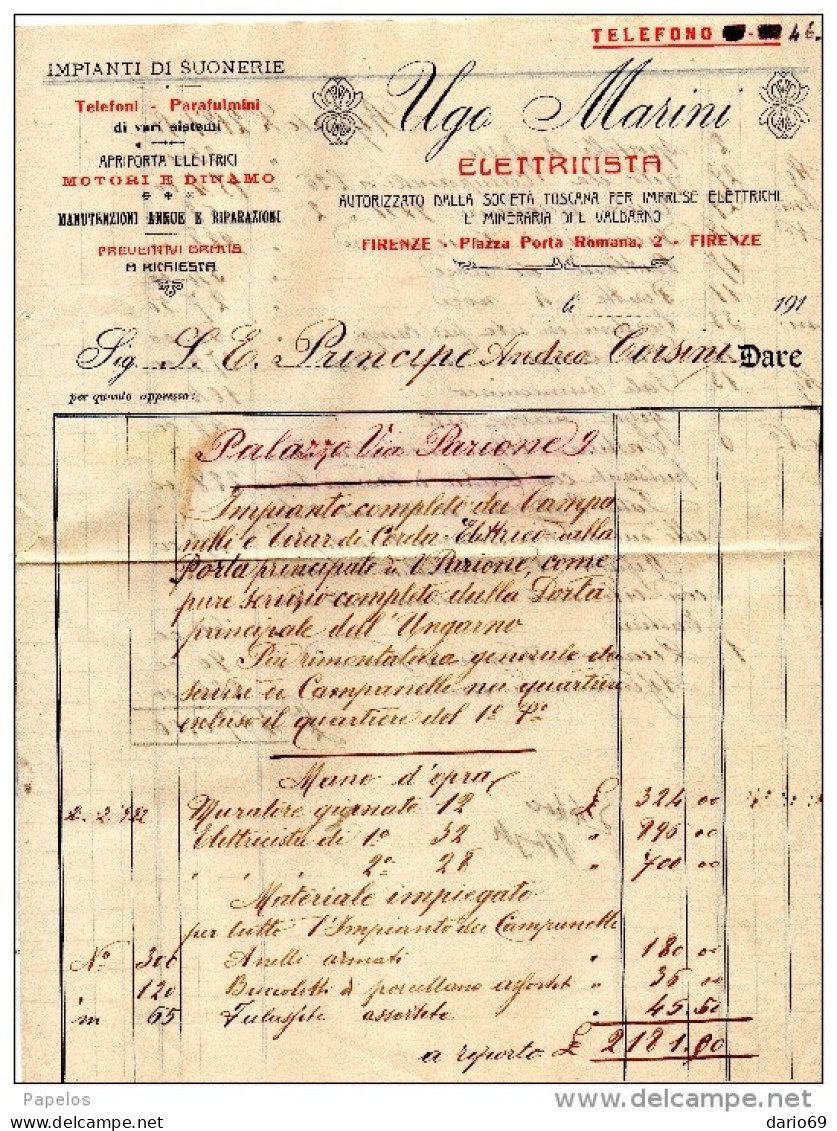 TELEFONO 46.
IMPIANTI DI SUONERIE
Telefoni - Parafulmini
di vari sistemi
APRIPORTA ELETTRICI
MOTORI E DINAMO
MANUTENZIONI ANNUE E RIPARAZIONI
PREVENTIVI GRATIS
A RICHIESTA
Ugo Marini
ELETTRICISTA
AUTORIZZATO DALLA SOCIETÀ TOSCANA PER IMPRESE ELETTRICHE
E MINERARIA DEL VALDARNO
FIRENZE - Piazza Porta Romana, 2 - FIRENZE
li 191
Sig. S. E. Principe Andrea Corsini Dare
per quanto appresso:
Palazzo Via Parione 9.
Impianto completo dei Campa
nelli e Tirar di Corda Elettrico alla
Porta principale di V. Parione, come
pure servizio completo dulla Porta
principale dell'Ungarno
Più rimontatura generale dei
servizi di Campanelle nei quartieri
escluso il quartiere del 1º Pº
Mano d'opra
2. 2. 922 Muratore giornate 12 £ 324 00
Elettricista di 1º 32 " 896 00
" " 2º 28 " 700 00
Materiale impiegato
per tutto l'Impianto dei Campanelle
Nº 300 Anelli armati " 180 00
120 Bucioletti di porcellana assortit " 36 00
m 65 assortite " 45.50
a reporto £ 2181.00
Papelos
www.delcampe.net
dario69